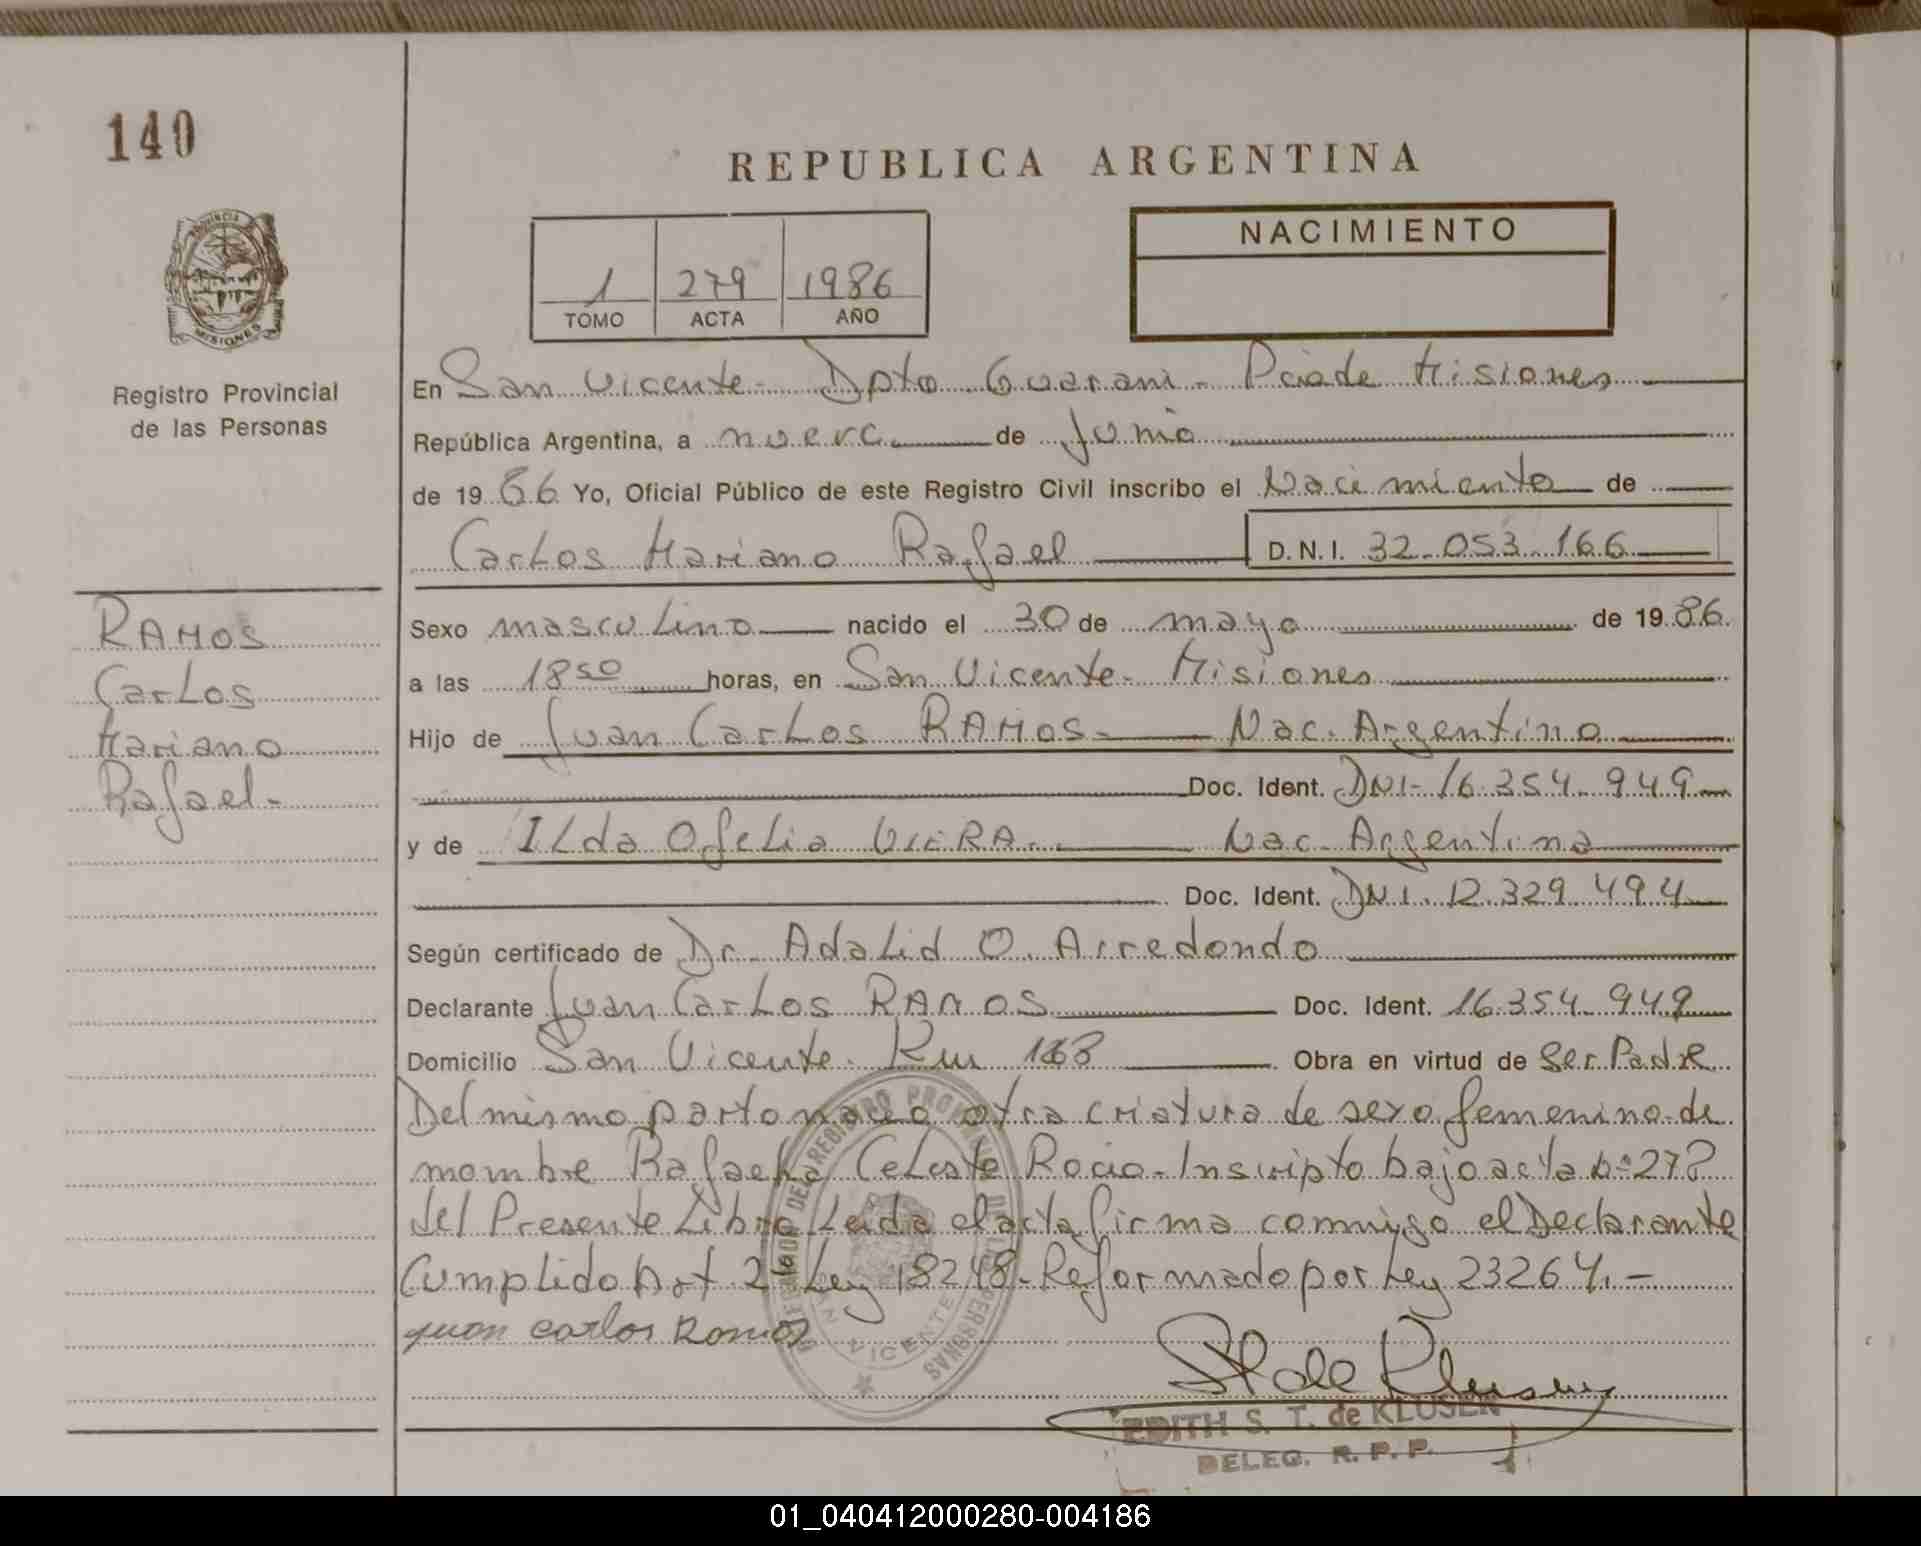 140
REPUBLICA ARGENTINA
PROVINCIA
MISIONES
1 279 1986
TOMO ACTA AÑO
NACIMIENTO
Registro Provincial
de las Personas
En San Vicente - Dpto Guarani - Pcia de Misiones
República Argentina, a nueve de Junio
de 1986 Yo, Oficial Público de este Registro Civil inscribo el Nacimiento de
Carlos Mariano Rafael D.N.I. 32.053.166
RAMOS
Carlos
Mariano
Rafael-
Sexo masculino nacido el 30 de mayo de 1986.
a las 18 50 horas, en San Vicente - Misiones
Hijo de Juan Carlos RAMOS - Nac. Argentino
Doc. Ident. DNI - 16.354.949
y de Ilda Ofelia VIERA. Nac. Argentina
Doc. Ident. DNI. 12.329.494
Según certificado de Dr. Adalid O. Arredondo
Declarante Juan Carlos RAMOS Doc. Ident. 16.354.949
Domicilio San Vicente. Km Obra en virtud de Ser Padre
Del mismo parto nacio otra criatura de sexo femenino de
nombre Rafaela Celeste Rocio - Inscripto bajo acta Nº 278
del Presente Libro Leida el acta firma conmigo el Declarante
Cumplido Art 2 Ley 18248 - Reformado por Ley 23264. -
Juan Carlos Ramos
DELEGACION DEL REGISTRO PROVINCIAL DE LAS PERSONAS
SAN VICENTE
EDITH S. T. de KLUSEN
DELEG. R. P. P.
01_040412000280-004186